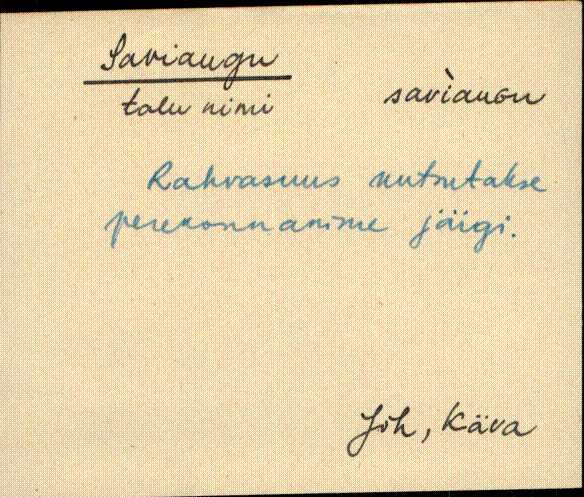 Saviaugu
talu nimi saviàuGu
Rahvasuus kutsutakse
perekonnanime järgi.
Jõh, Käva